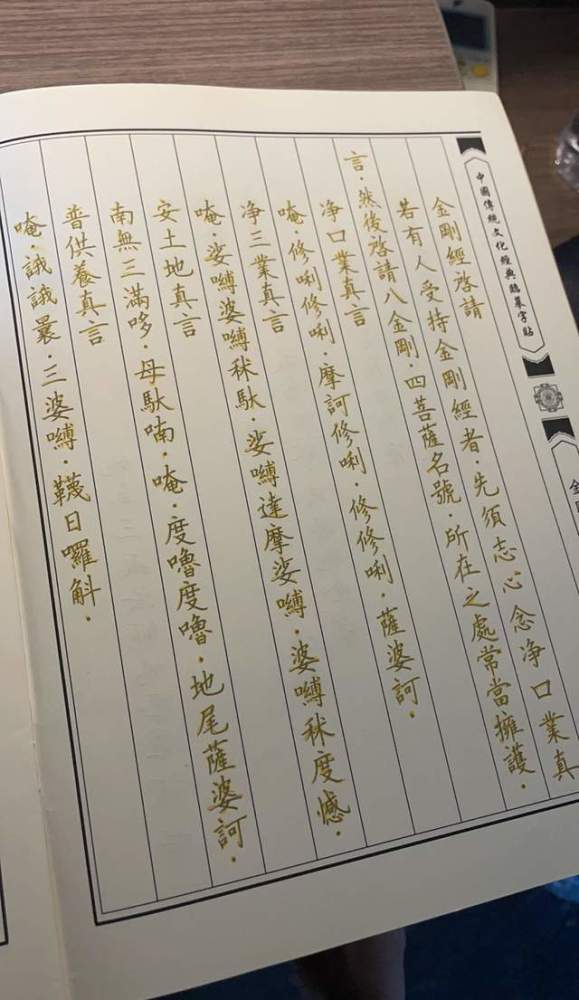 中國傳統文化經典臨摹字貼
金剛經啓請
若有人受持金剛經者．先須志心念净口業真
言．然後啓請八金剛．四菩薩名號．所在之處常當擁護．
净口業真言
唵．修唎修唎．摩訶修唎．修修唎．薩婆訶．
净三業真言
唵．娑嚩婆嚩秫馱．娑嚩達摩娑嚩．婆嚩秫度憾．
安土地真言
南無三滿哆．母馱喃．唵．度嚕度嚕．地尾薩婆訶．
普供養真言
唵．誐誐曩．三婆嚩．韈日囉斛．